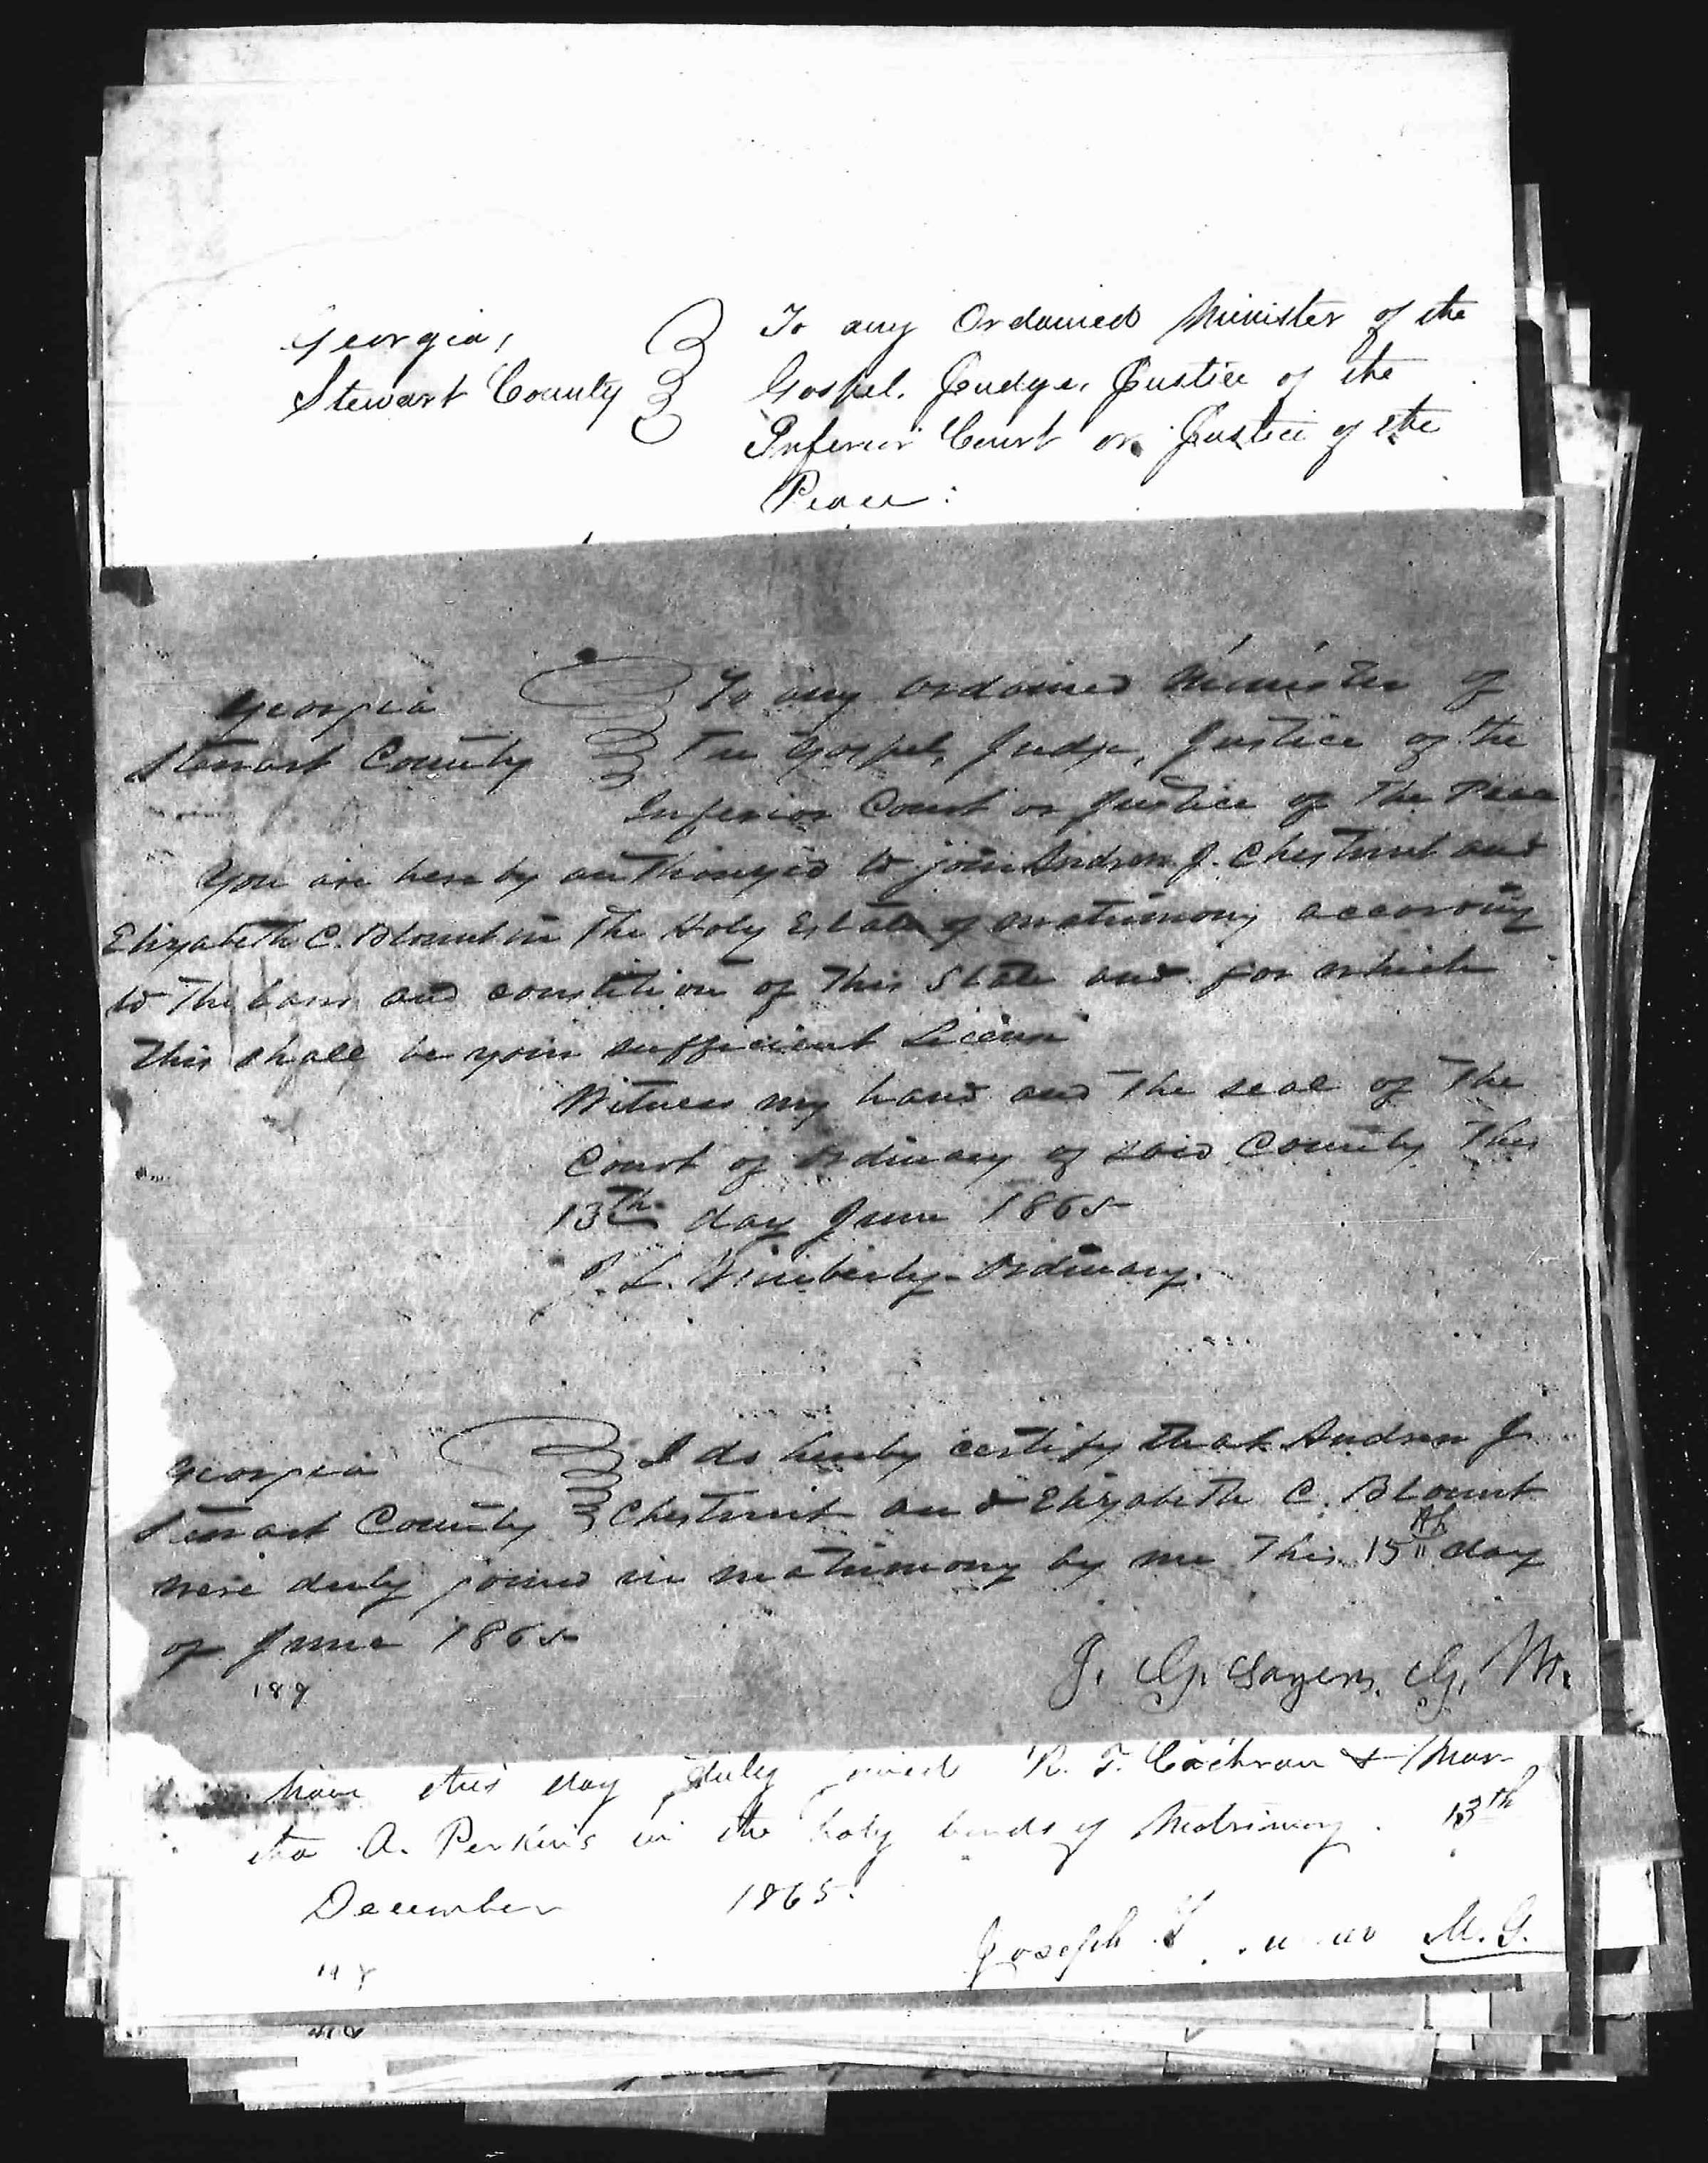 Georgia,
Stewart County
To any Ordained Minister of the
Gospel. Judge, Justice of the
Inferior Court or Justice of the
Peace:
Georgia
Stewart County
To any ordained Minister of
The Gospel, Judge, Justice of the
Inferior Court or Justice of The Peac
You are hereby authorized to join Andrew J. Chestnut and
Elizabeth C. Blount in The Holy Estate of matrimony according
to The Laws and constitution of This State and for which
This shall be your sufficient License
Witness my hand and The seal of The
Court of Ordinary of said County This
13th day June 1865
J. L. Wimberly Ordinary.
Georgia
Stewart County
I do hereby certify that Andrew J.
Chestnut and Elizabeth C. Blount
were duly joined in matrimony by me This 15th day
of June 1865
J. G. Sayers. G. M.
189
have this day duly joined R. T. Cochran & Mar-
tha A. Perkins in the holy bonds of Matrimony. 13th
December 1865.
Joseph M. G.